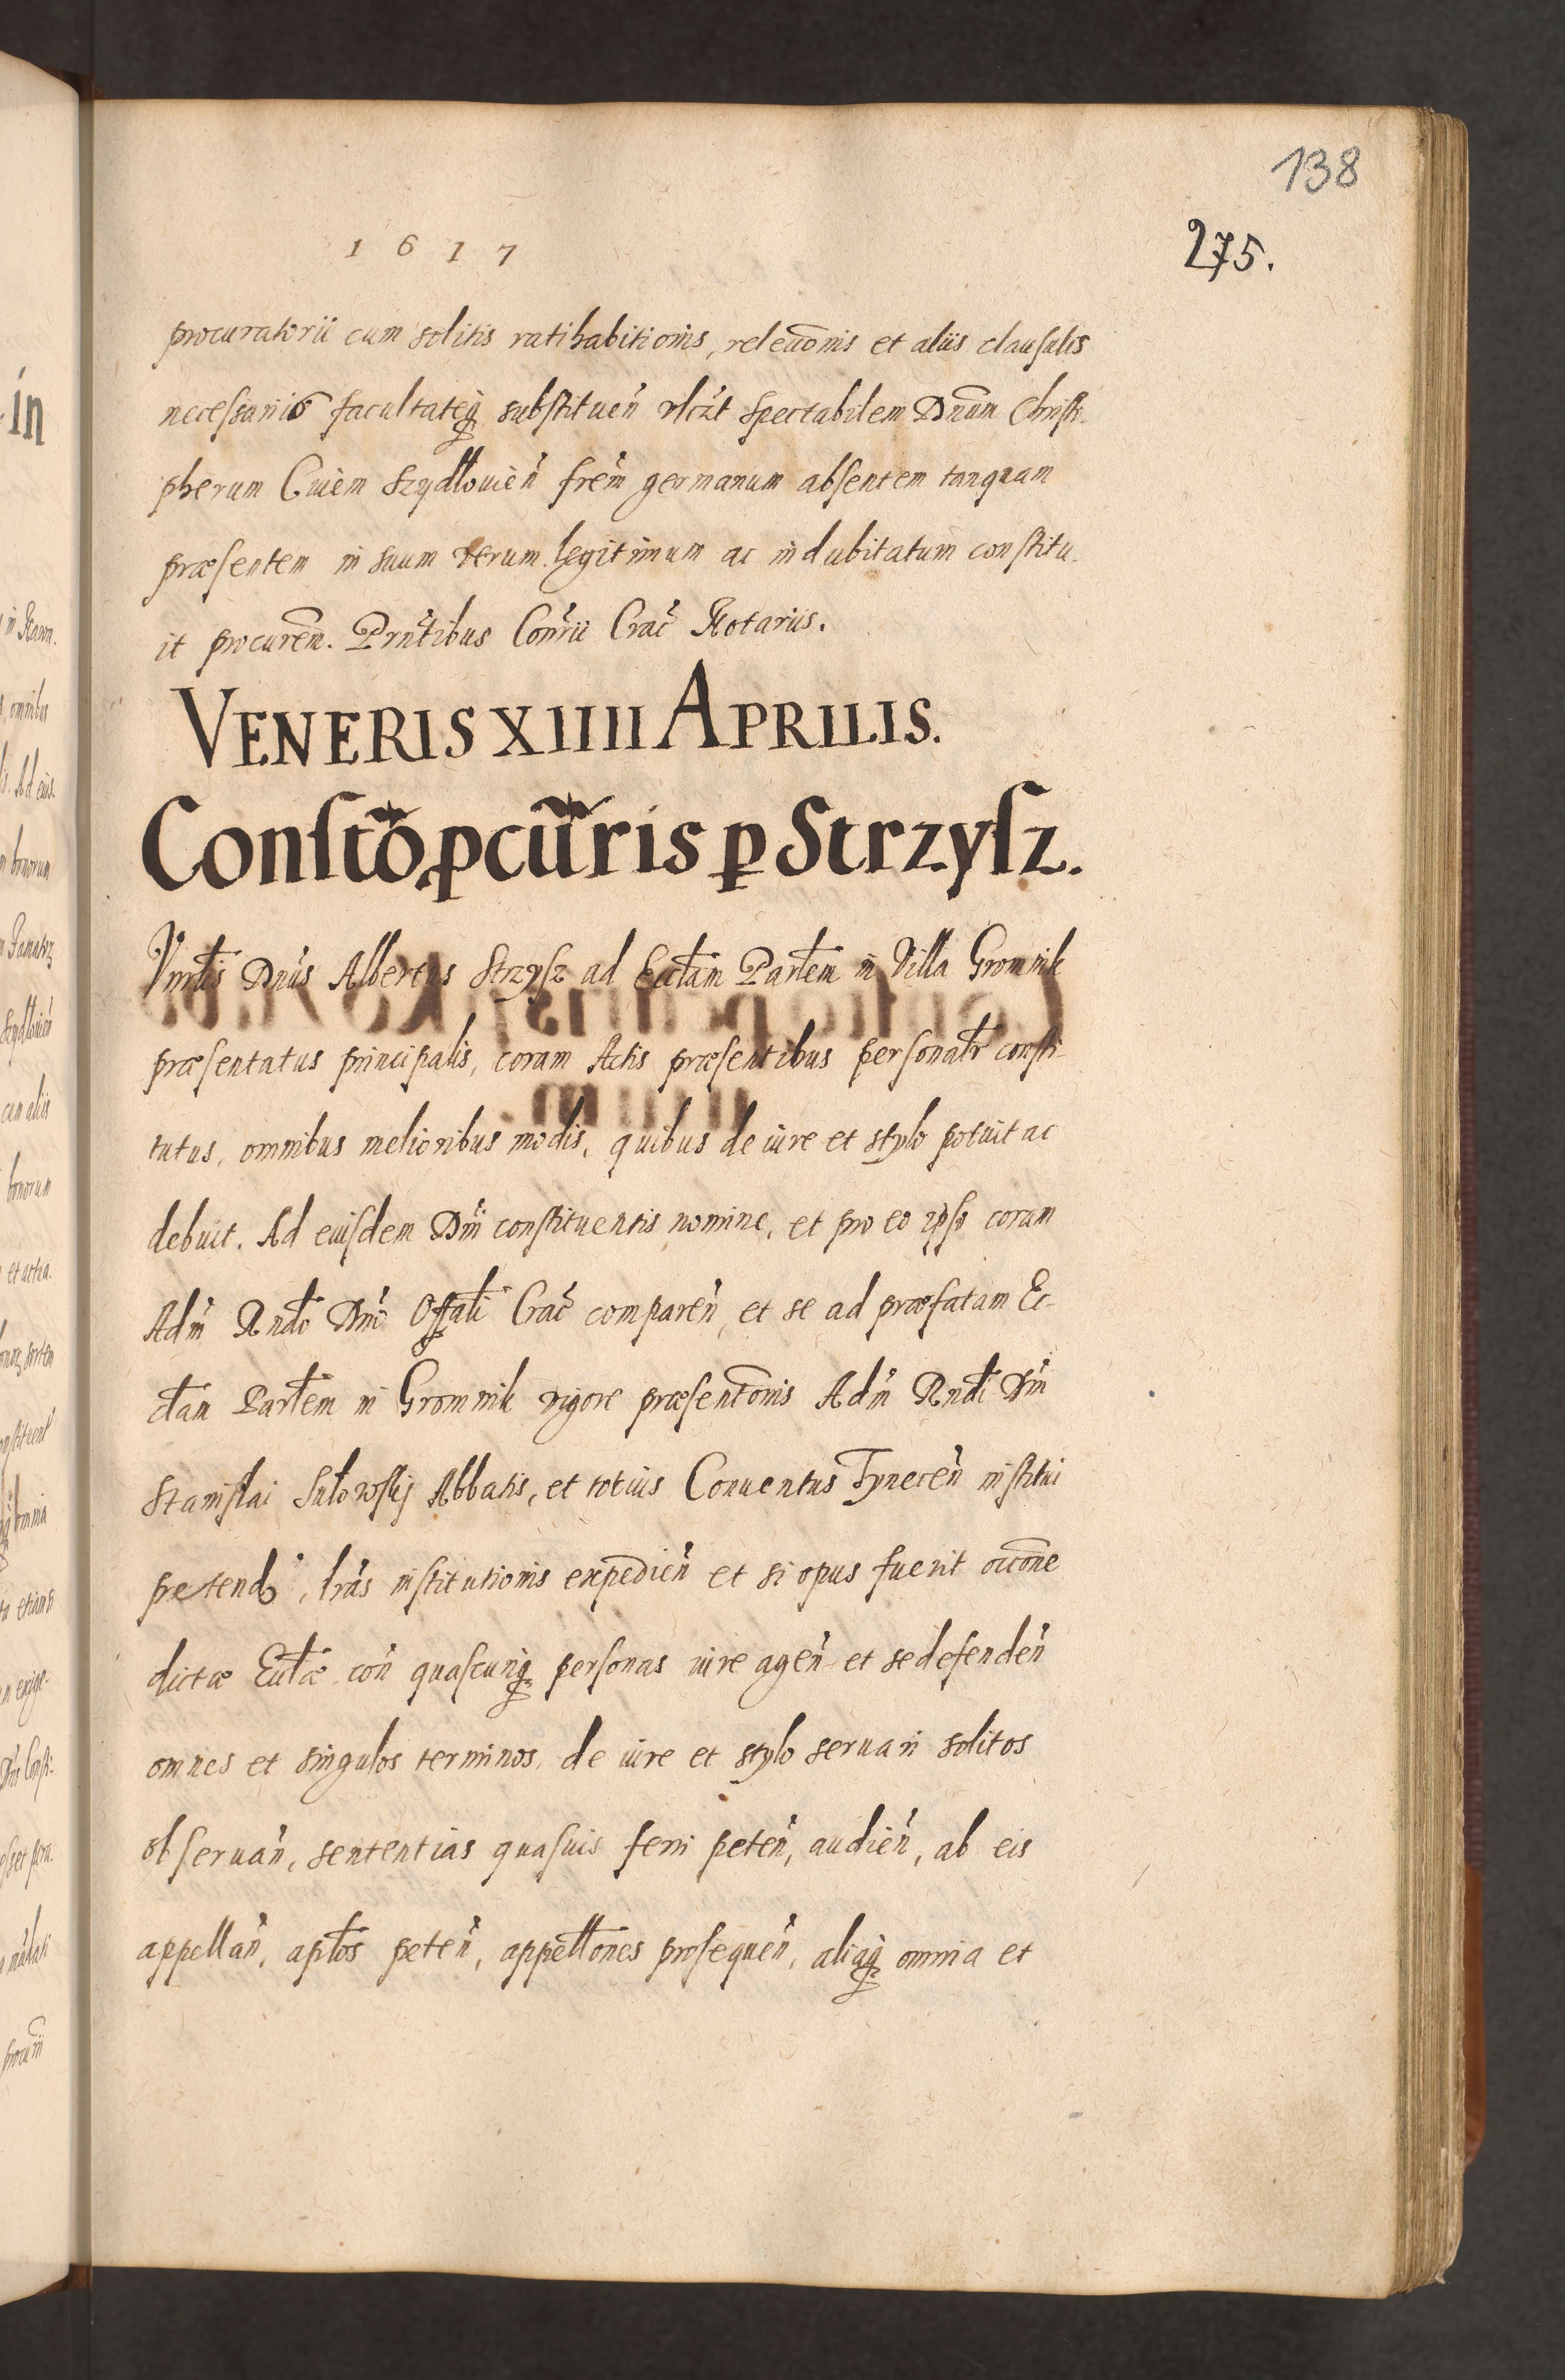 138
1617
275.
procuratorii cum solitis ratihabitionis, releuõnis et aliis clausulis
necessariis facultateq́ substitueñ vlczt spectabilem Dnũm Christo-
pherum Ciuem Szydłouieñ frẽm germanum absentem tanquam
præsentem in suum verum legitimum ac indubitatum constitu-
it procurẽm. Prñtibus Conr̃ii Crac̃ Notariis.
VENERIS XIIII APRILIS.
Constõ ꝓcur̃ris ꝑ Strzysz.
Dnũs Albertus Strzysz ad Eccl̃am Parl̃em in Villa Gromnik
præsentatus principalis, coram Actis præsentibus personalr̃ consti-
tutus, omnibus melioribus modis, quibus de iure et stylo potuit ac
debuit. Ad eiusdem Dñi constituentis nomine, et pro eo ipso coram
Adm̃ Rndõ Dnõ Offali Crac̃ compareñ, et se ad præfatam Ec-
cl̃am Parl̃em in Gromnik vigore præsentõnis Adm̃ Rndĩ Dñi
Stanislai Sułowskij Abbatis, et totius Conuentus Tyneceñ institui
petend, lr̃as institutionis expedieñ et si opus fuerit occõne
dictæ Eccl̃æ con̄ quascunq́ personas iure ageñ et se defendeñ
omnes et singulos terminos, de iure et stylo seruari solitos
obseruañ, sententias quasuis ferri peteñ, audieñ, ab eis
appellañ, apl̃os peteñ, appellõnes prosequeñ, aliaq́ omnia et